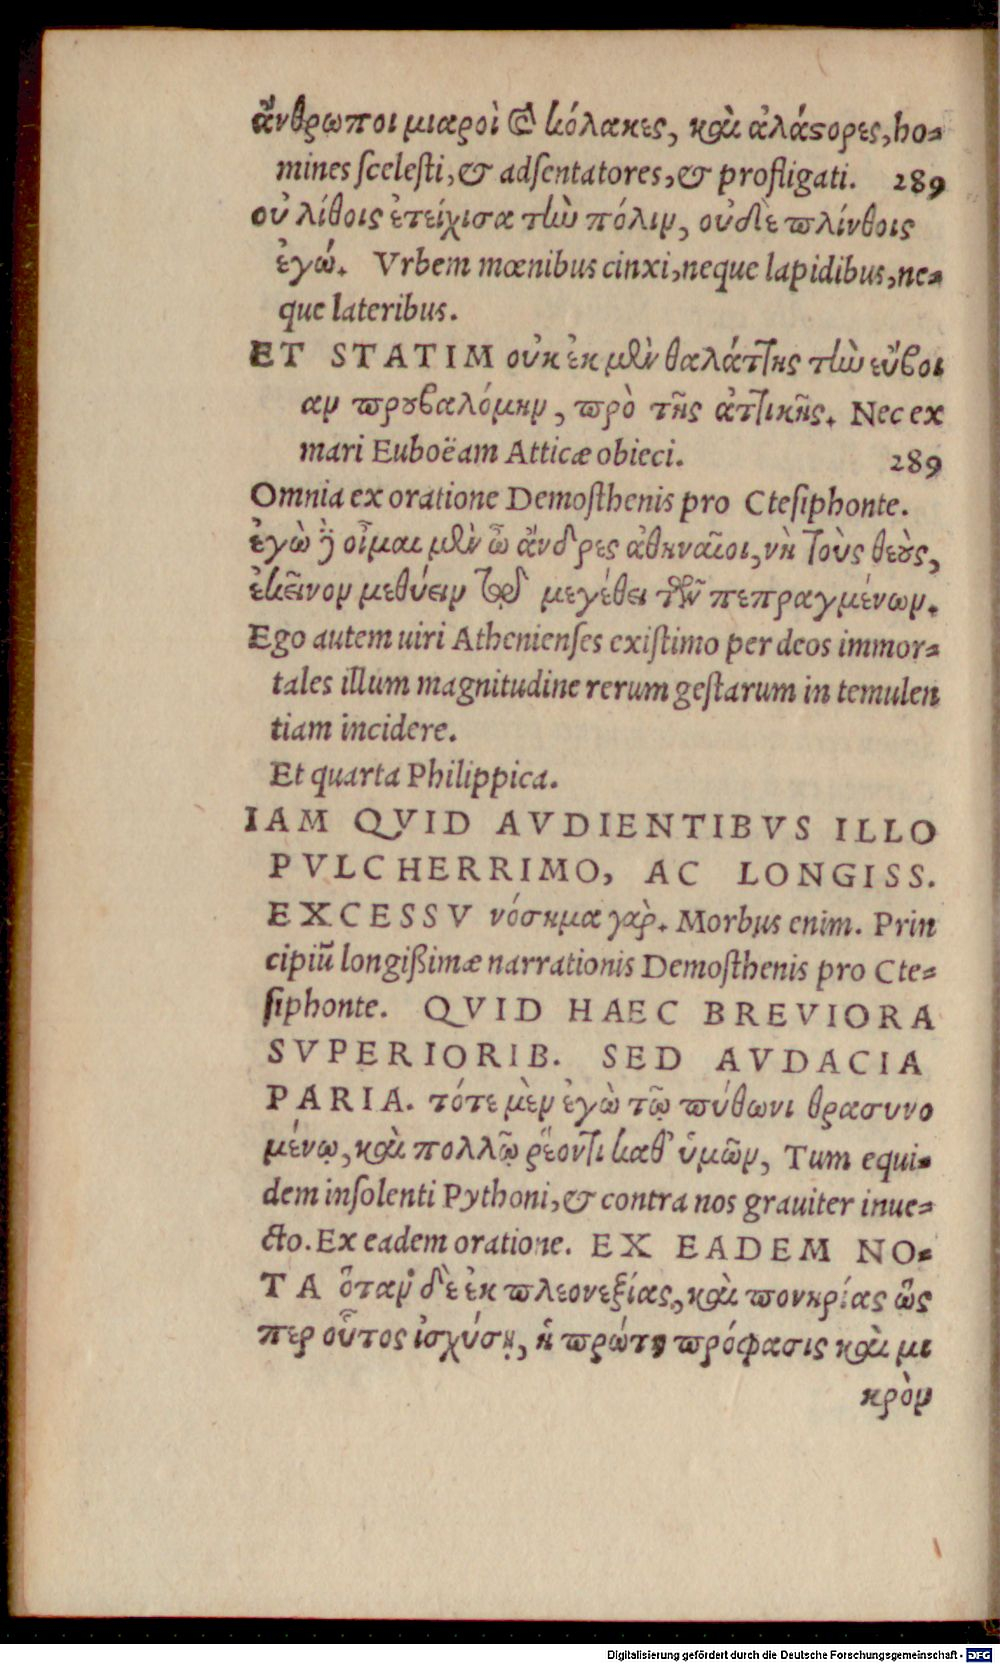 ἄνθρωποι μιαροὶ & κόλακες, καὶ ἀλάστορες, ho-
mines scelesti, & adsentatores, & profligati. 289
οὐ λίθοις ἐτείχισα τὴν πόλιν, οὐδὲ πλίνθοις
ἐγώ. Vrbem mœnibus cinxi, neque lapidibus, ne-
que lateribus.
ET STATIM οὐκ ἐκ μὲν θαλάττης τὴν εὔβοι
αν προυβαλόμην, πρὸ τῆς ἀττικῆς. Nec ex
mari Euboëam Atticæ obieci. 289
Omnia ex oratione Demosthenis pro Ctesiphonte.
ἐγὼ δὲ οἶμαι μὲν ὦ ἄνδρες ἀθηναῖοι, νὴ τοὺς θεοὺς,
ἐκεῖνον μεθύειν τῷ μεγέθει τῶν πεπραγμένων.
Ego autem uiri Athenienses existimo per deos immor-
tales illum magnitudine rerum gestarum in temulen
tiam incidere.
Et quarta Philippica.
IAM QVID AVDIENTIBVS ILLO
PVLCHERRIMO, AC LONGISS.
EXCESSV νόσημα γὰρ. Morbus enim. Prin
cipiũ longißimæ narrationis Demosthenis pro Cte-
siphonte. QVID HAEC BREVIORA
SVPERIORIB. SED AVDACIA
PARIA. τότε μὲν ἐγὼ τῷ πύθωνι θρασυνο
μένῳ, καὶ πολλῷ ῥέοντι καθ' ὑμῶν, Tum equi-
dem insolenti Pythoni, & contra nos grauiter inue-
cto. Ex eadem oratione. EX EADEM NO-
TA ὅταν δὲ ἐκ πλεονεξίας, καὶ πονηρίας ὥς
περ οὗτος ἰσχύσῃ, ἡ πρώτη πρόφασις καὶ μι
κρὸν
Digitalisierung gefördert durch die Deutsche Forschungsgemeinschaft - DFG